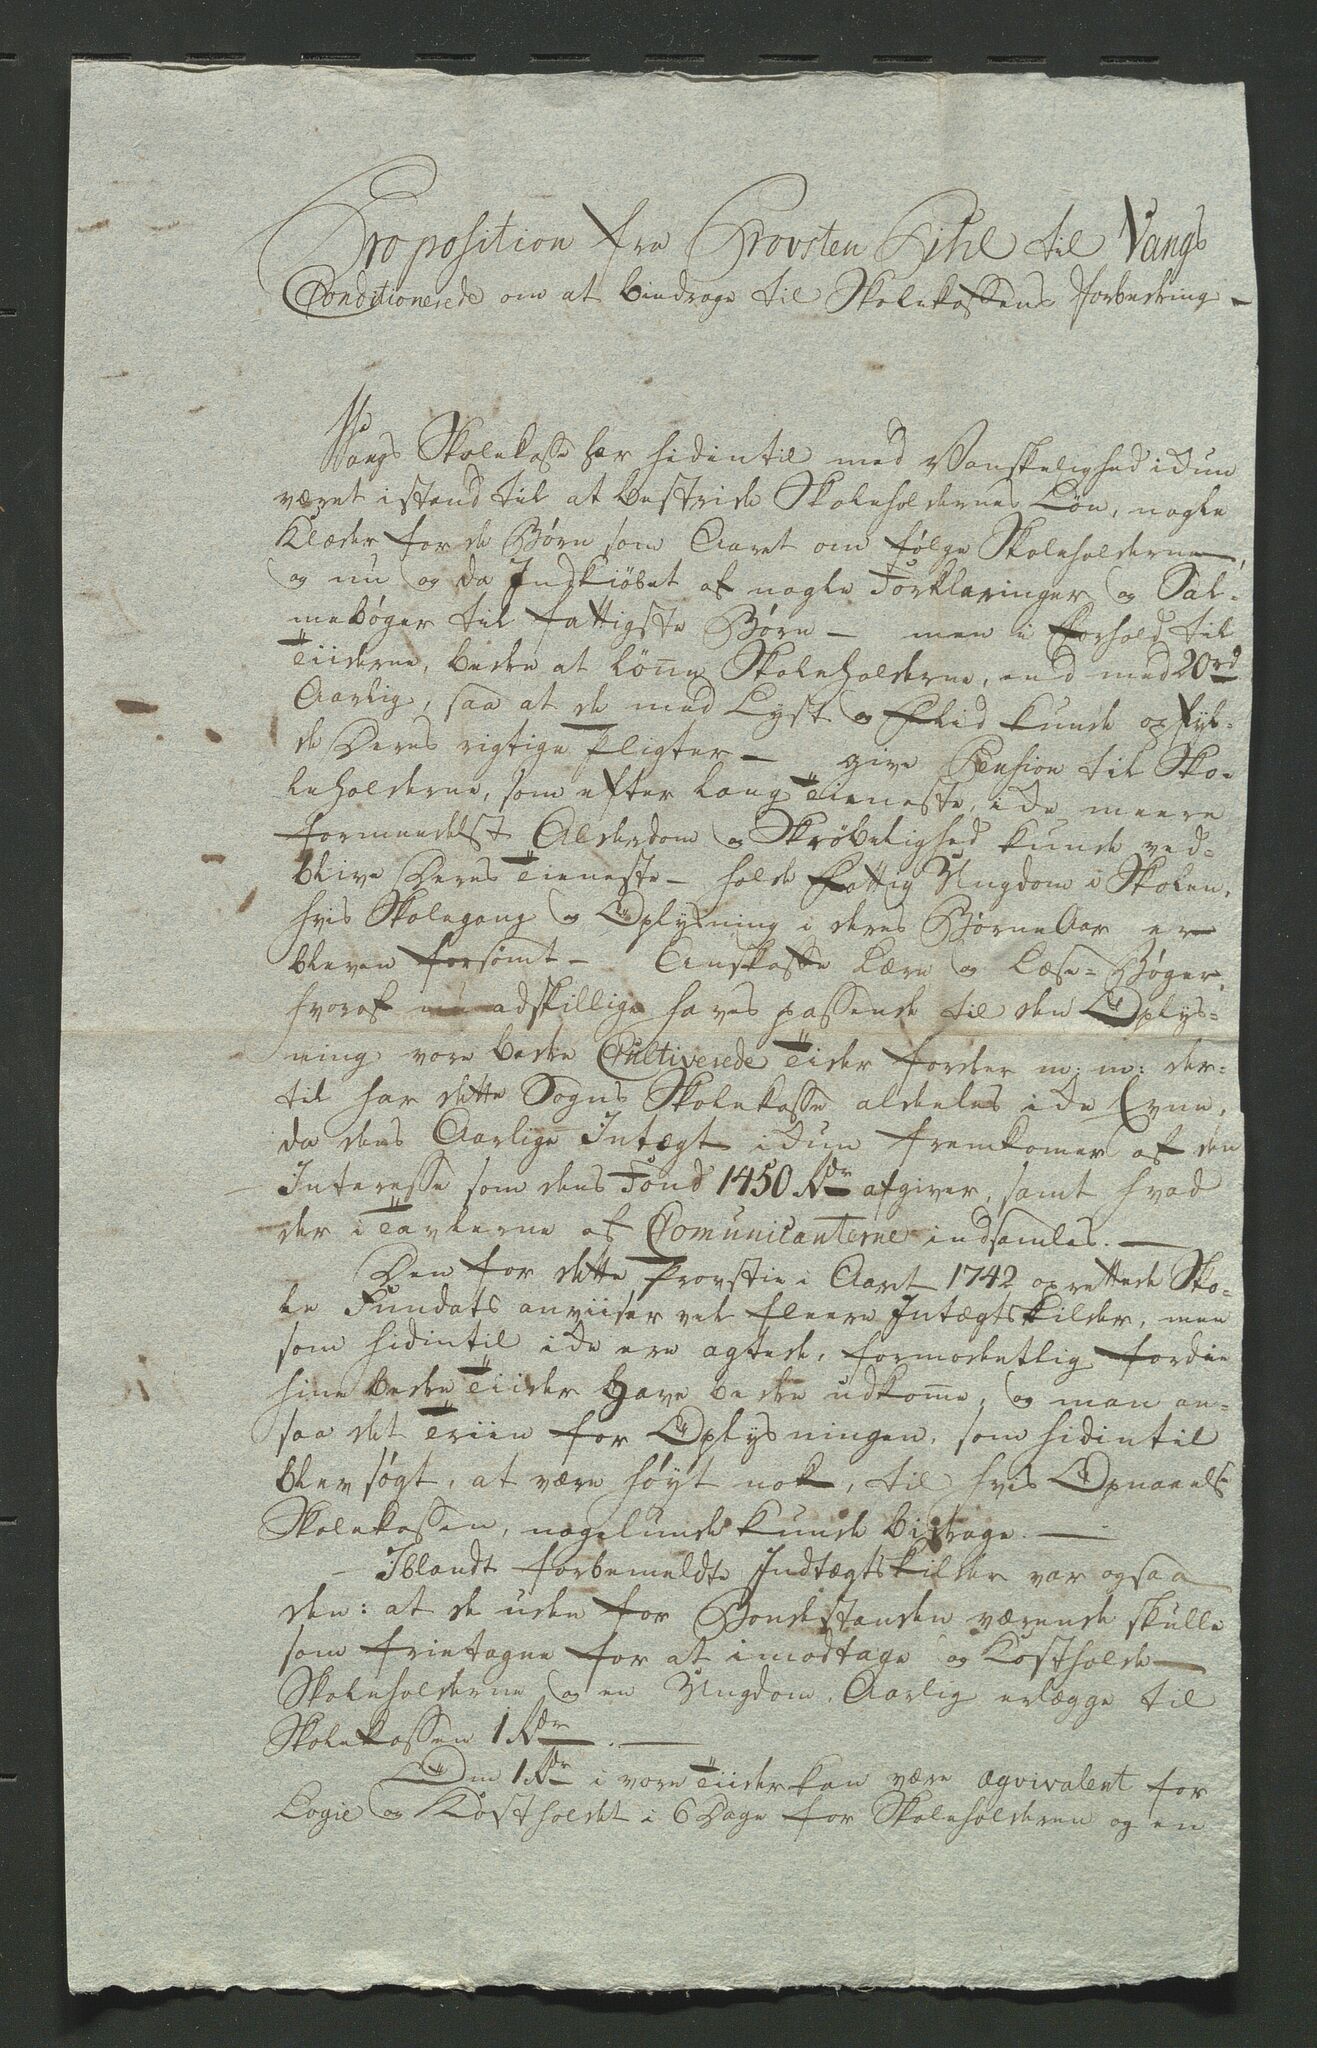 Proposition fra Provsten Pihl til Vangs
Conditionerede om at biedrage til Skolekassens forbedring -
Vangs Skolekasse har hidintil med Vanskelighed idun
været istand til at bestride Skoleholdernes Løn, nogle
Klæder for de Børn som Aaret om følge Skoleholderne,
og nu og da Indkiöbet af nogle Forklaringer og Sal-
mebøger til fattigste Børn - men i Forhold til
Tiiderne, bedre at lønne Skoleholderne, end med 20rd
Aarlig, saa at de med Lyst og Fliid kunde opfyl-
de Deres rigtige Pligter - give Pension til Sko-
leholderne, som efter lang Tieneste, ide meere
formedelst Alderdom og Skrøbelighed kunde ved-
blive Deres Tieneste - holde Fattig Ungdom i Skolen,
hvis Skolegang og Oplysning i deres BørneAar er
bleven forsømt - Anskaffe Lære og Læse-Bøger,
hvoraf nu adskillige haves passende til den Oplys-
ning vore bedre Cultiverede Tiider fordrer m: m: der-
til har dette Sogns Skolekasse aldeles ide Evne,
da dens Aarlige Intægt idun fremkomer af den
Interesse som dens Fond 1450 Rdr afgiver, samt hvad
der i Tavlerne af Comunicanterne indsamles. -
Den for dette Provstie i Aaret 1742 oprettede Sko-
le Fundats anviiser vel fleere Intægtskilder, men
som hidintil ide ere agtede, formodentlig fordie
hine bedre Tiider gave bedre udkomme, og man an-
saa det Triin for Oplysningen, som hidintil
blev søgt, at være høyt nok, til hvis Opnaaelse
Skolekassen, nogelunde kunde bidrage. -
- Iblandt forbemeldte Indtægtskilder var ogsaa
den: at de uden for Bondestanden værende skulle
som frietagne for at imodtage og Kostholde
Skoleholderne og en Ungdom, Aarlig erlægge til
Skolekassen 1 Rdr. -
Om 1 Rdr i vore Tiider kan være æqvivalent for
Logie og Kostholdet i 6 Dage for Skoleholderen og en